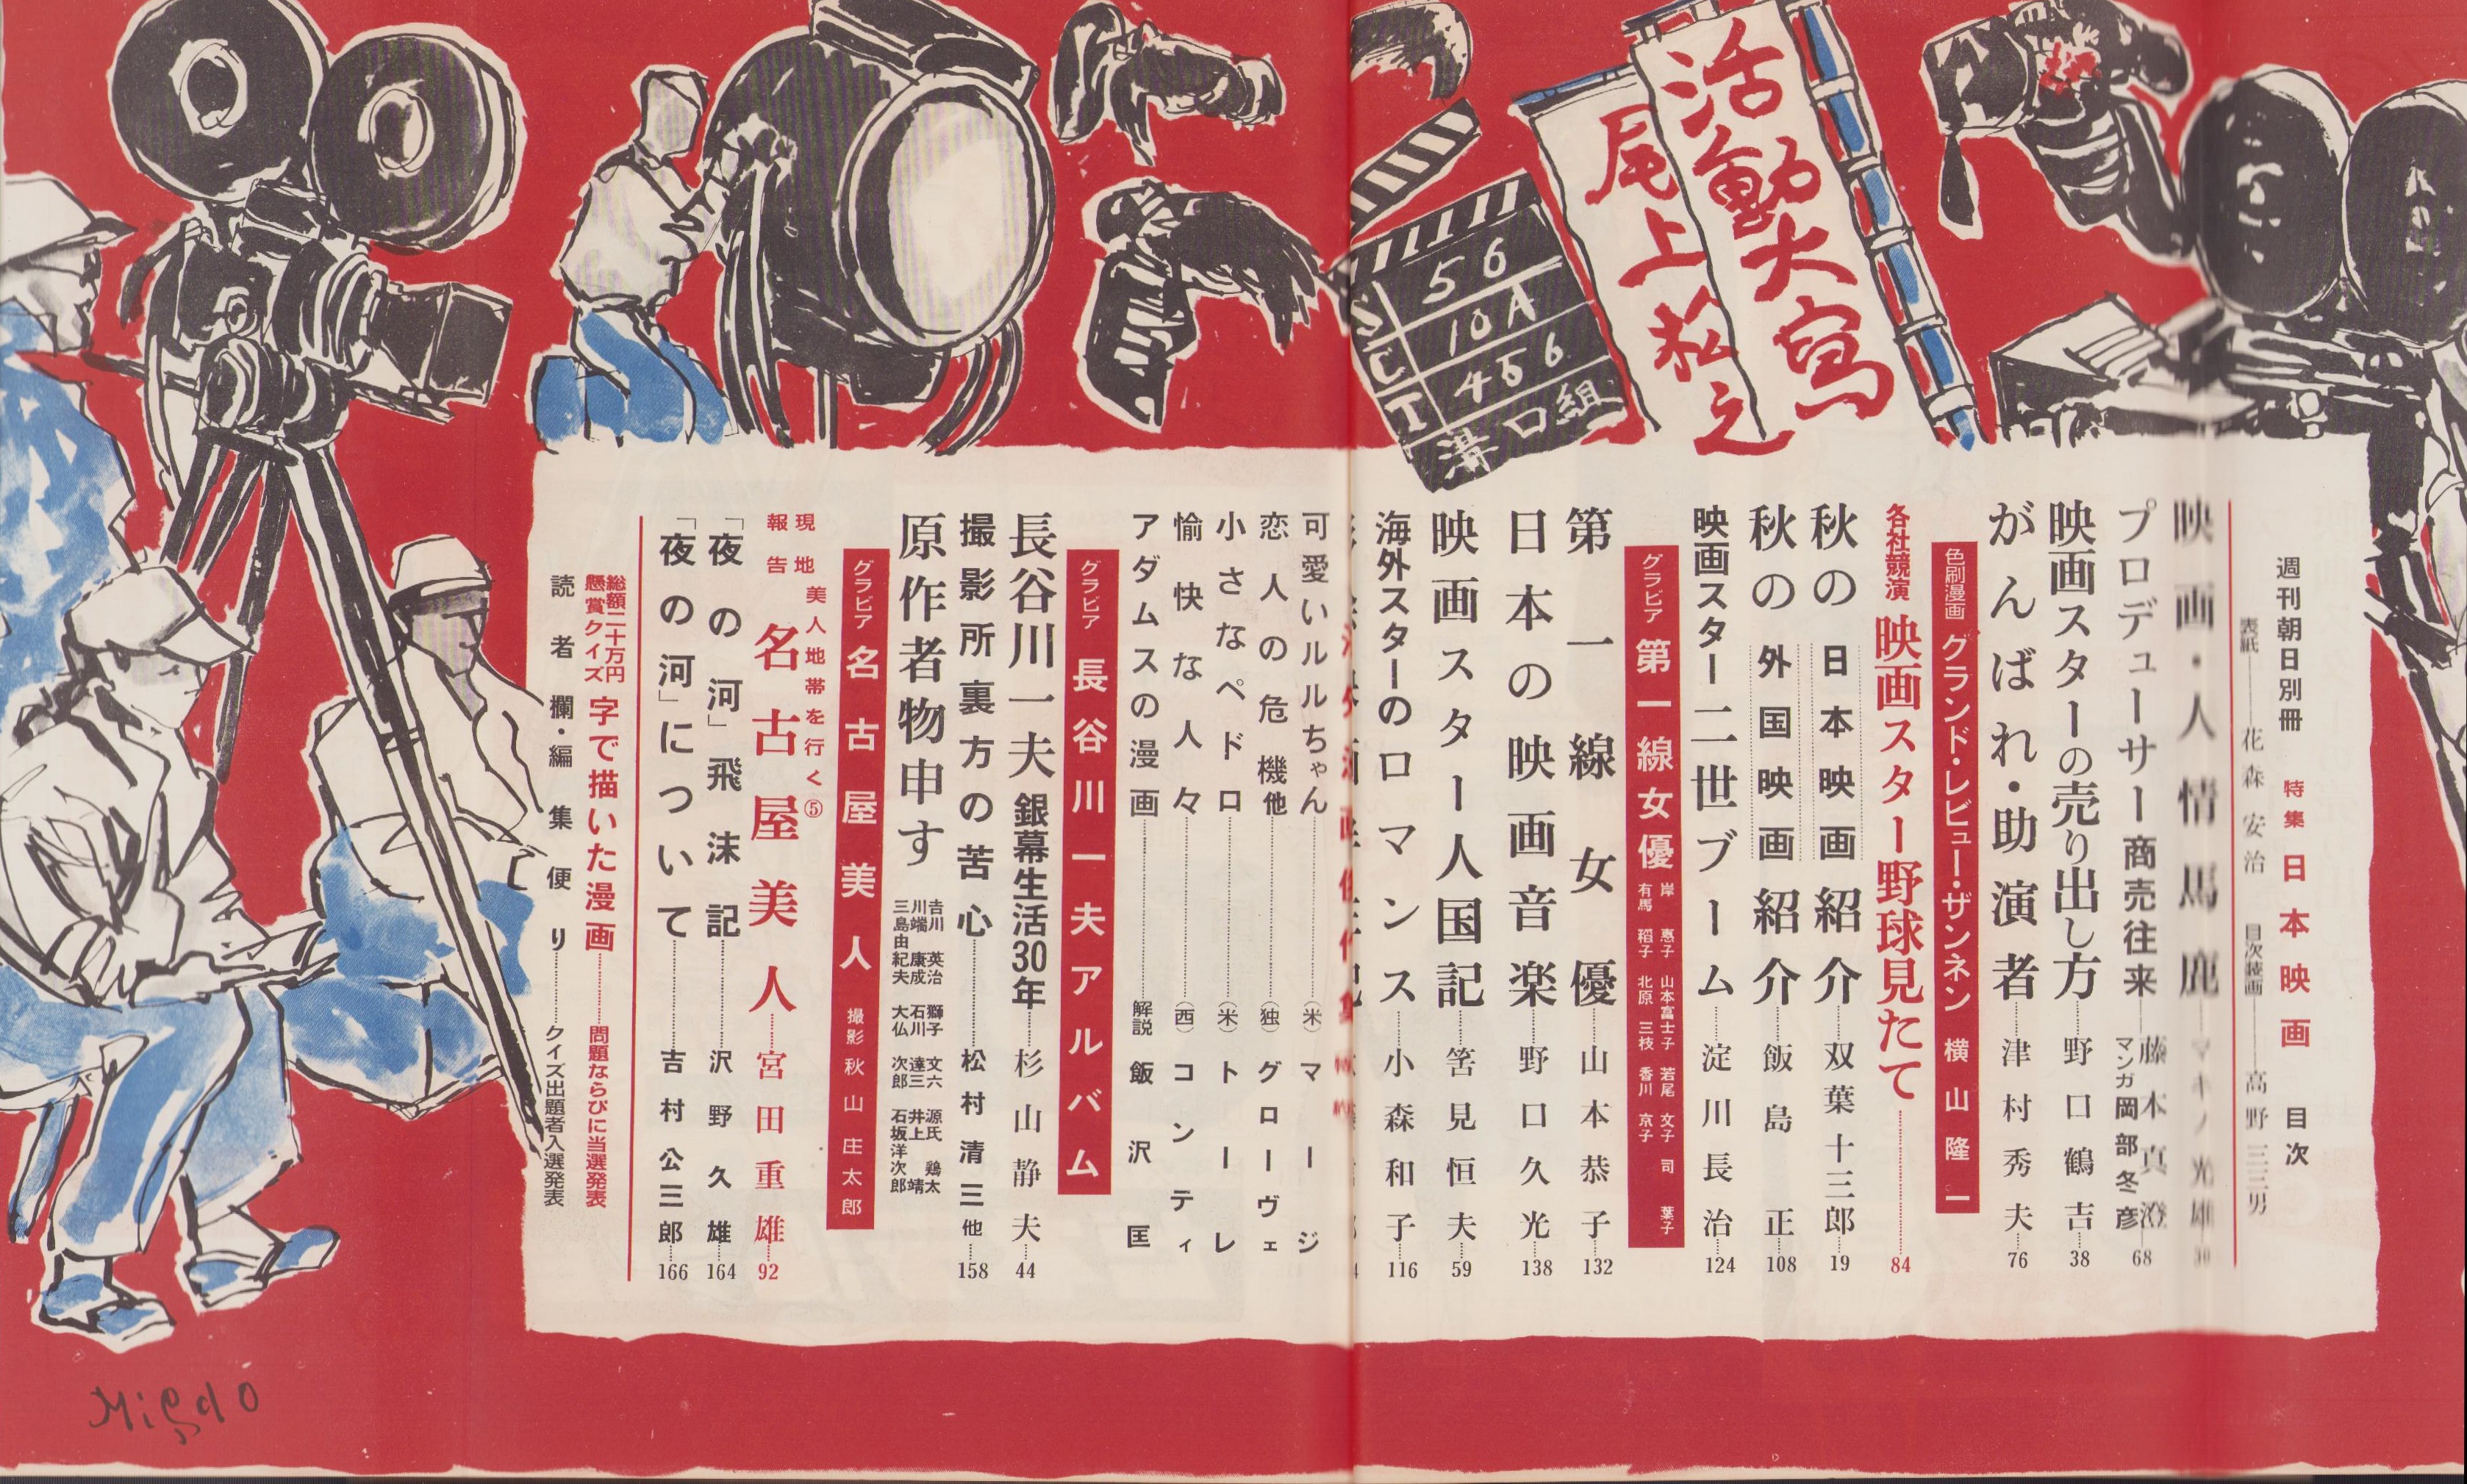 活動大寫
尾上松之
56
10A
456
溝口組
週刊朝日別冊 特集 日本映画 目次
表紙 花森安治 目次挿画 高野三三男
映画・人情馬鹿 マキノ光雄
プロデューサー商売往来 藤本真澄 マンガ岡部冬彦 68
映画スターの売り出し方 野口鶴吉 38
がんばれ・助演者 津村秀夫 76
色刷漫画 グランド・レビュー・ザンネン 横山隆一
各社競演 映画スター野球見たて 84
秋の日本映画紹介 双葉十三郎 19
秋の外国映画紹介 飯島正 108
映画スター二世ブーム 淀川長治 124
グラビア 第一線女優 岸恵子 山本富士子 若尾文子 司葉子
有馬稲子 北原三枝 香川京子
第一線女優 山本恭子 132
日本の映画音楽 野口久光 138
映画スター人国記 筈見恒夫 59
海外スターのロマンス 小森和子 116
可愛いルルちゃん (米) マージ
恋人の危機他 (独) グローヴェ
小さなペドロ (米) トーレ
愉快な人々 (西) コンティ
アダムスの漫画 解説 飯沢匡
グラビア 長谷川一夫アルバム
長谷川一夫 銀幕生活30年 杉山静夫 44
撮影所裏方の苦心 松村清三他 158
原作者物申す 吉川英治 獅子文六 源氏鶏太
川端康成 石川達三 井上靖
三島由紀夫 大仏次郎 石坂洋次郎
グラビア 名古屋美人 撮影 秋山庄太郎
現地報告 美人地帯を行く⑤
名古屋美人 宮田重雄 92
「夜の河」飛沫記 沢野久雄 164
「夜の河」について 吉村公三郎 166
総額二十万円
懸賞クイズ 字で描いた漫画 問題ならびに当選発表
読者欄・編集便り クイズ出題者入選発表